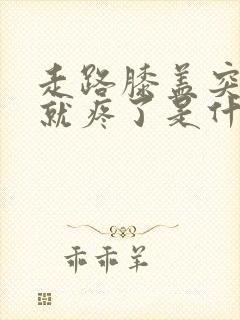 走路膝盖突
就疼了是什
乖乖羊